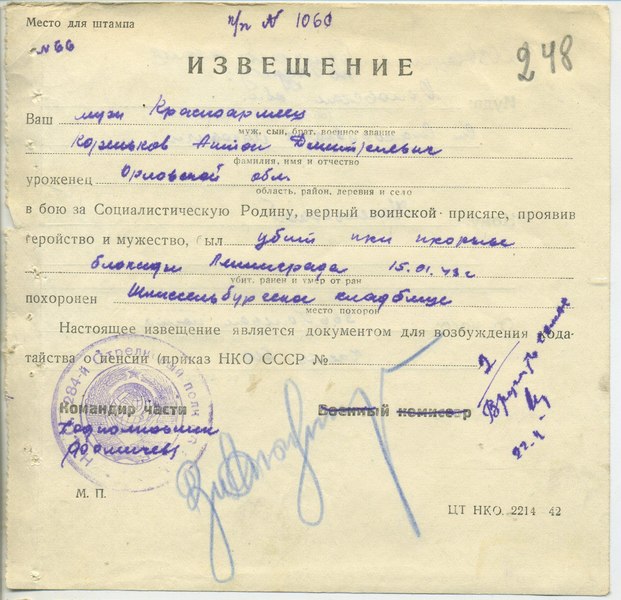 Место для штампа
п/п № 1060
№66
248
ИЗВЕЩЕНИЕ
Ваш муж Красноармеец
муж, сын, брат, военное звание
Кореньков Антон Дмитриевич
фамилия, имя и отчество
уроженец Орловской обл.
область, район, деревня и село
в бою за Социалистическую Родину, верный воинской присяге, проявив
геройство и мужество, был убит при прорыве
блокады Ленинграда 15.01.43 г
убит, ранен и умер от ран
похоронен Шлиссельбургское кладбище
место похорон
Настоящее извещение является документом для возбуждения хода-
тайства о пенсии (приказ НКО СССР №
284-й Стрелковый полк
Командир части
Военный комиссар
Подполковник
М. П.
ЦТ НКО. 2214 42